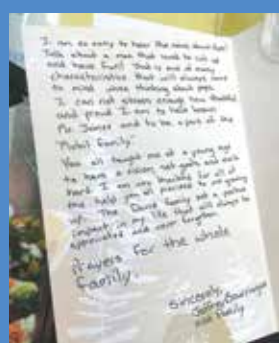 I am so sorry to hear the news about
Talk about a man that loved to cut up
and have fun! That is one of many
characteristics that will always come
to mind when thinking about pops.
I can not stress enough how thankful
and proud I am to have known
Mr. James and to be a part of the
"Mabil Family."
You all taught me at a young age
to have a vision, set goals and work
hard. I am very thankful for all of
the help you all provided to me growing
up. The family put a positive
impact in my life that will always be
appreciated and never forgotten.
Prayers for the whole
family.
Sincerely,
Jeffrey
and family